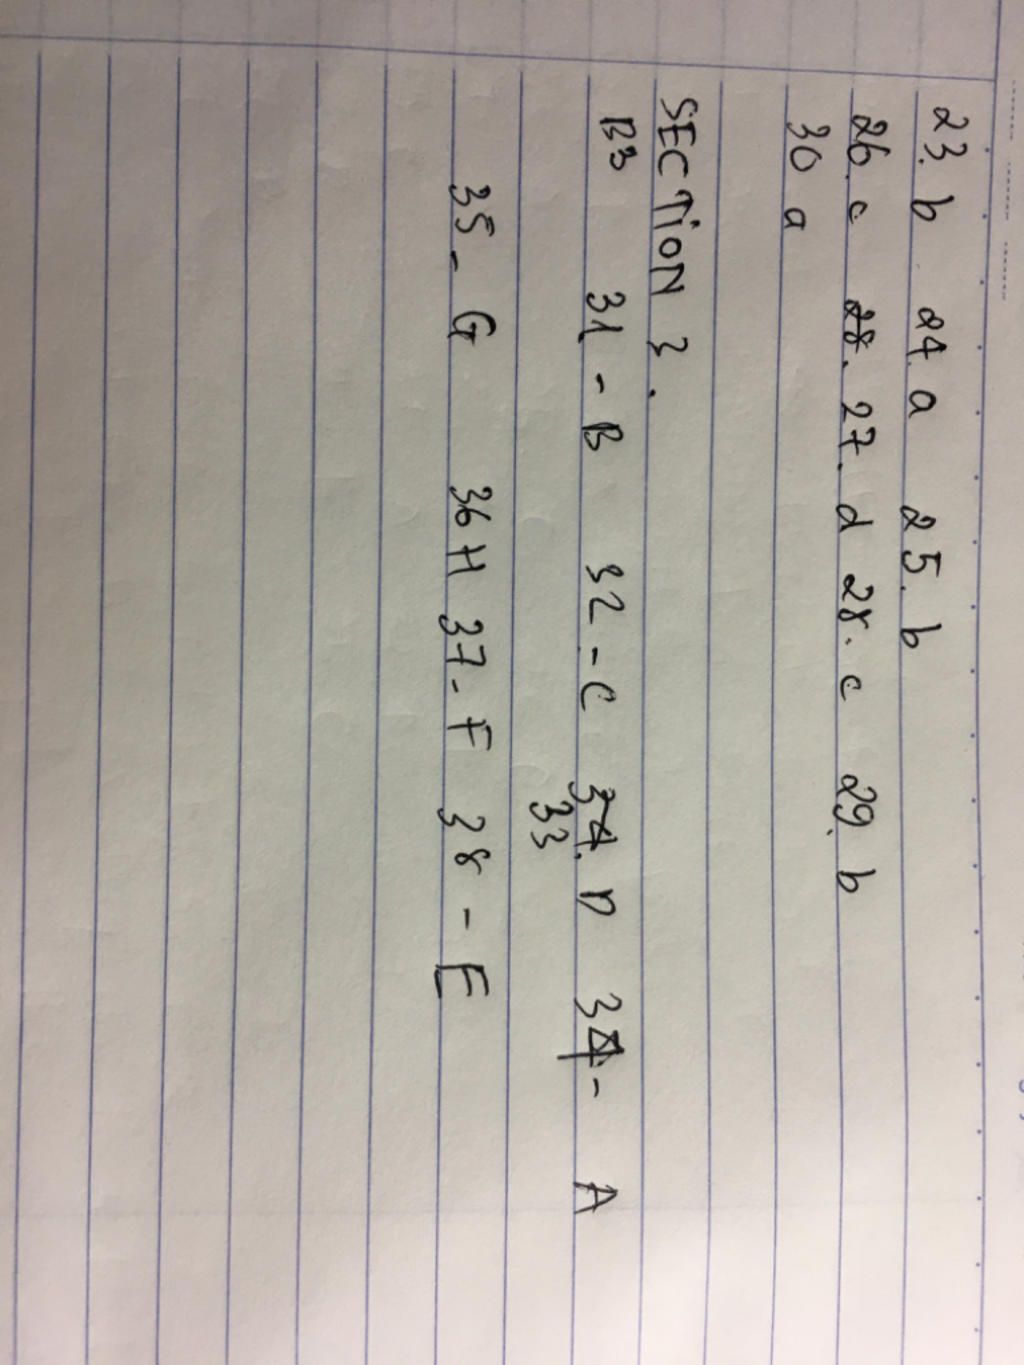 23. b 24. a 25. b
26. c 28. 27. d 28. c 29. b
30 a
SECTION 3.
B3 31 - B 32 - C 34. D 34 - A
33
35 - G 36 H 37 - F 38 - E